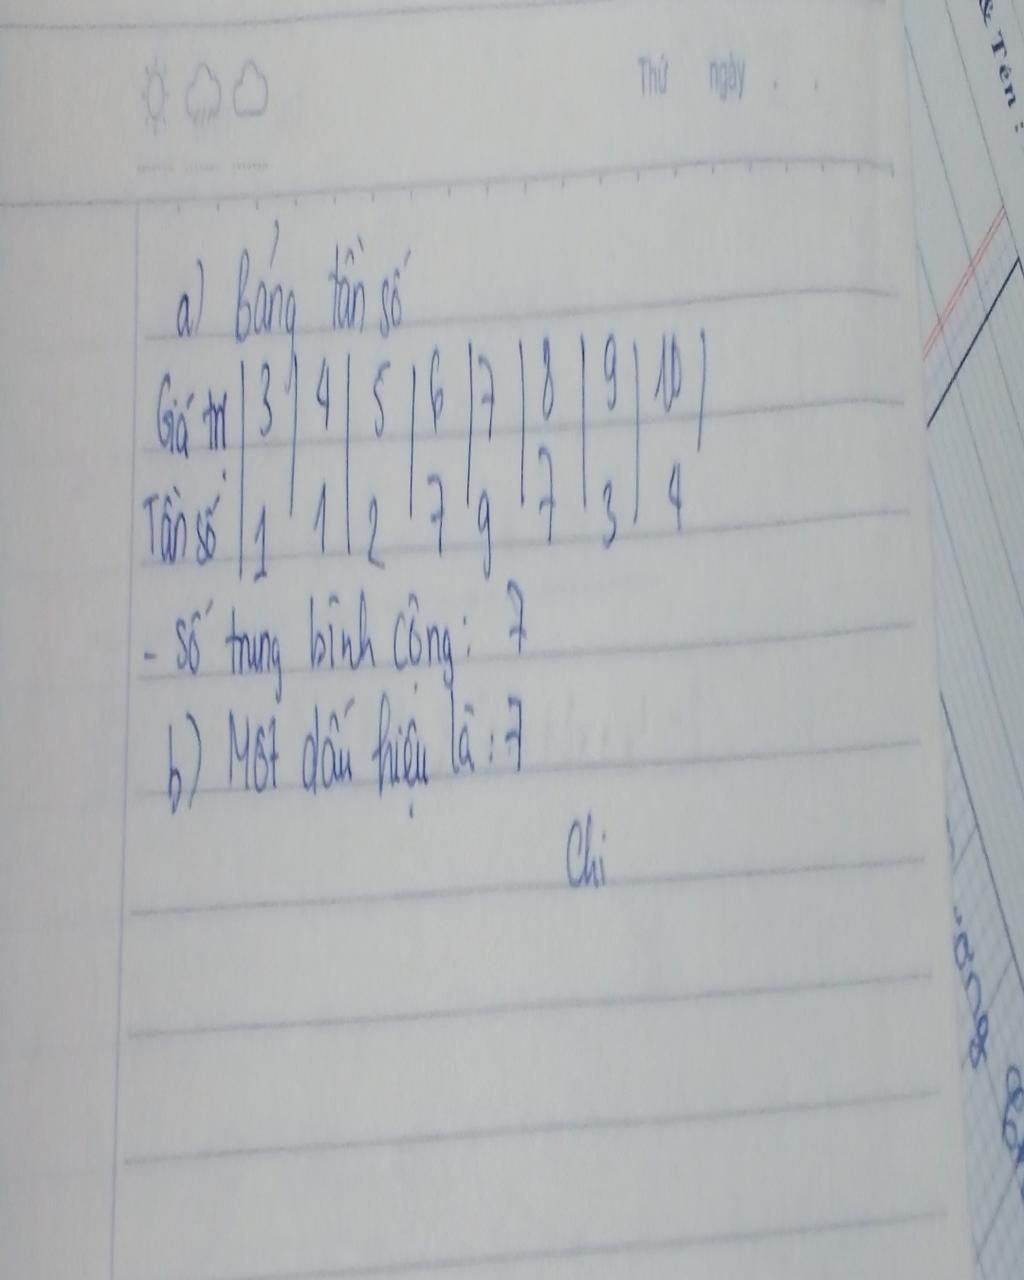 Thứ ngày . .
& Tên :
a) Bảng tần số
Giá trị | 3 | 4 | 5 | 6 | 7 | 8 | 9 | 10 |
Tần số | 1 | 1 | 2 | 7 | 9 | 7 | 3 | 4
- Số trung bình cộng : 7
b) Mốt dấu hiệu là : 7
Chi